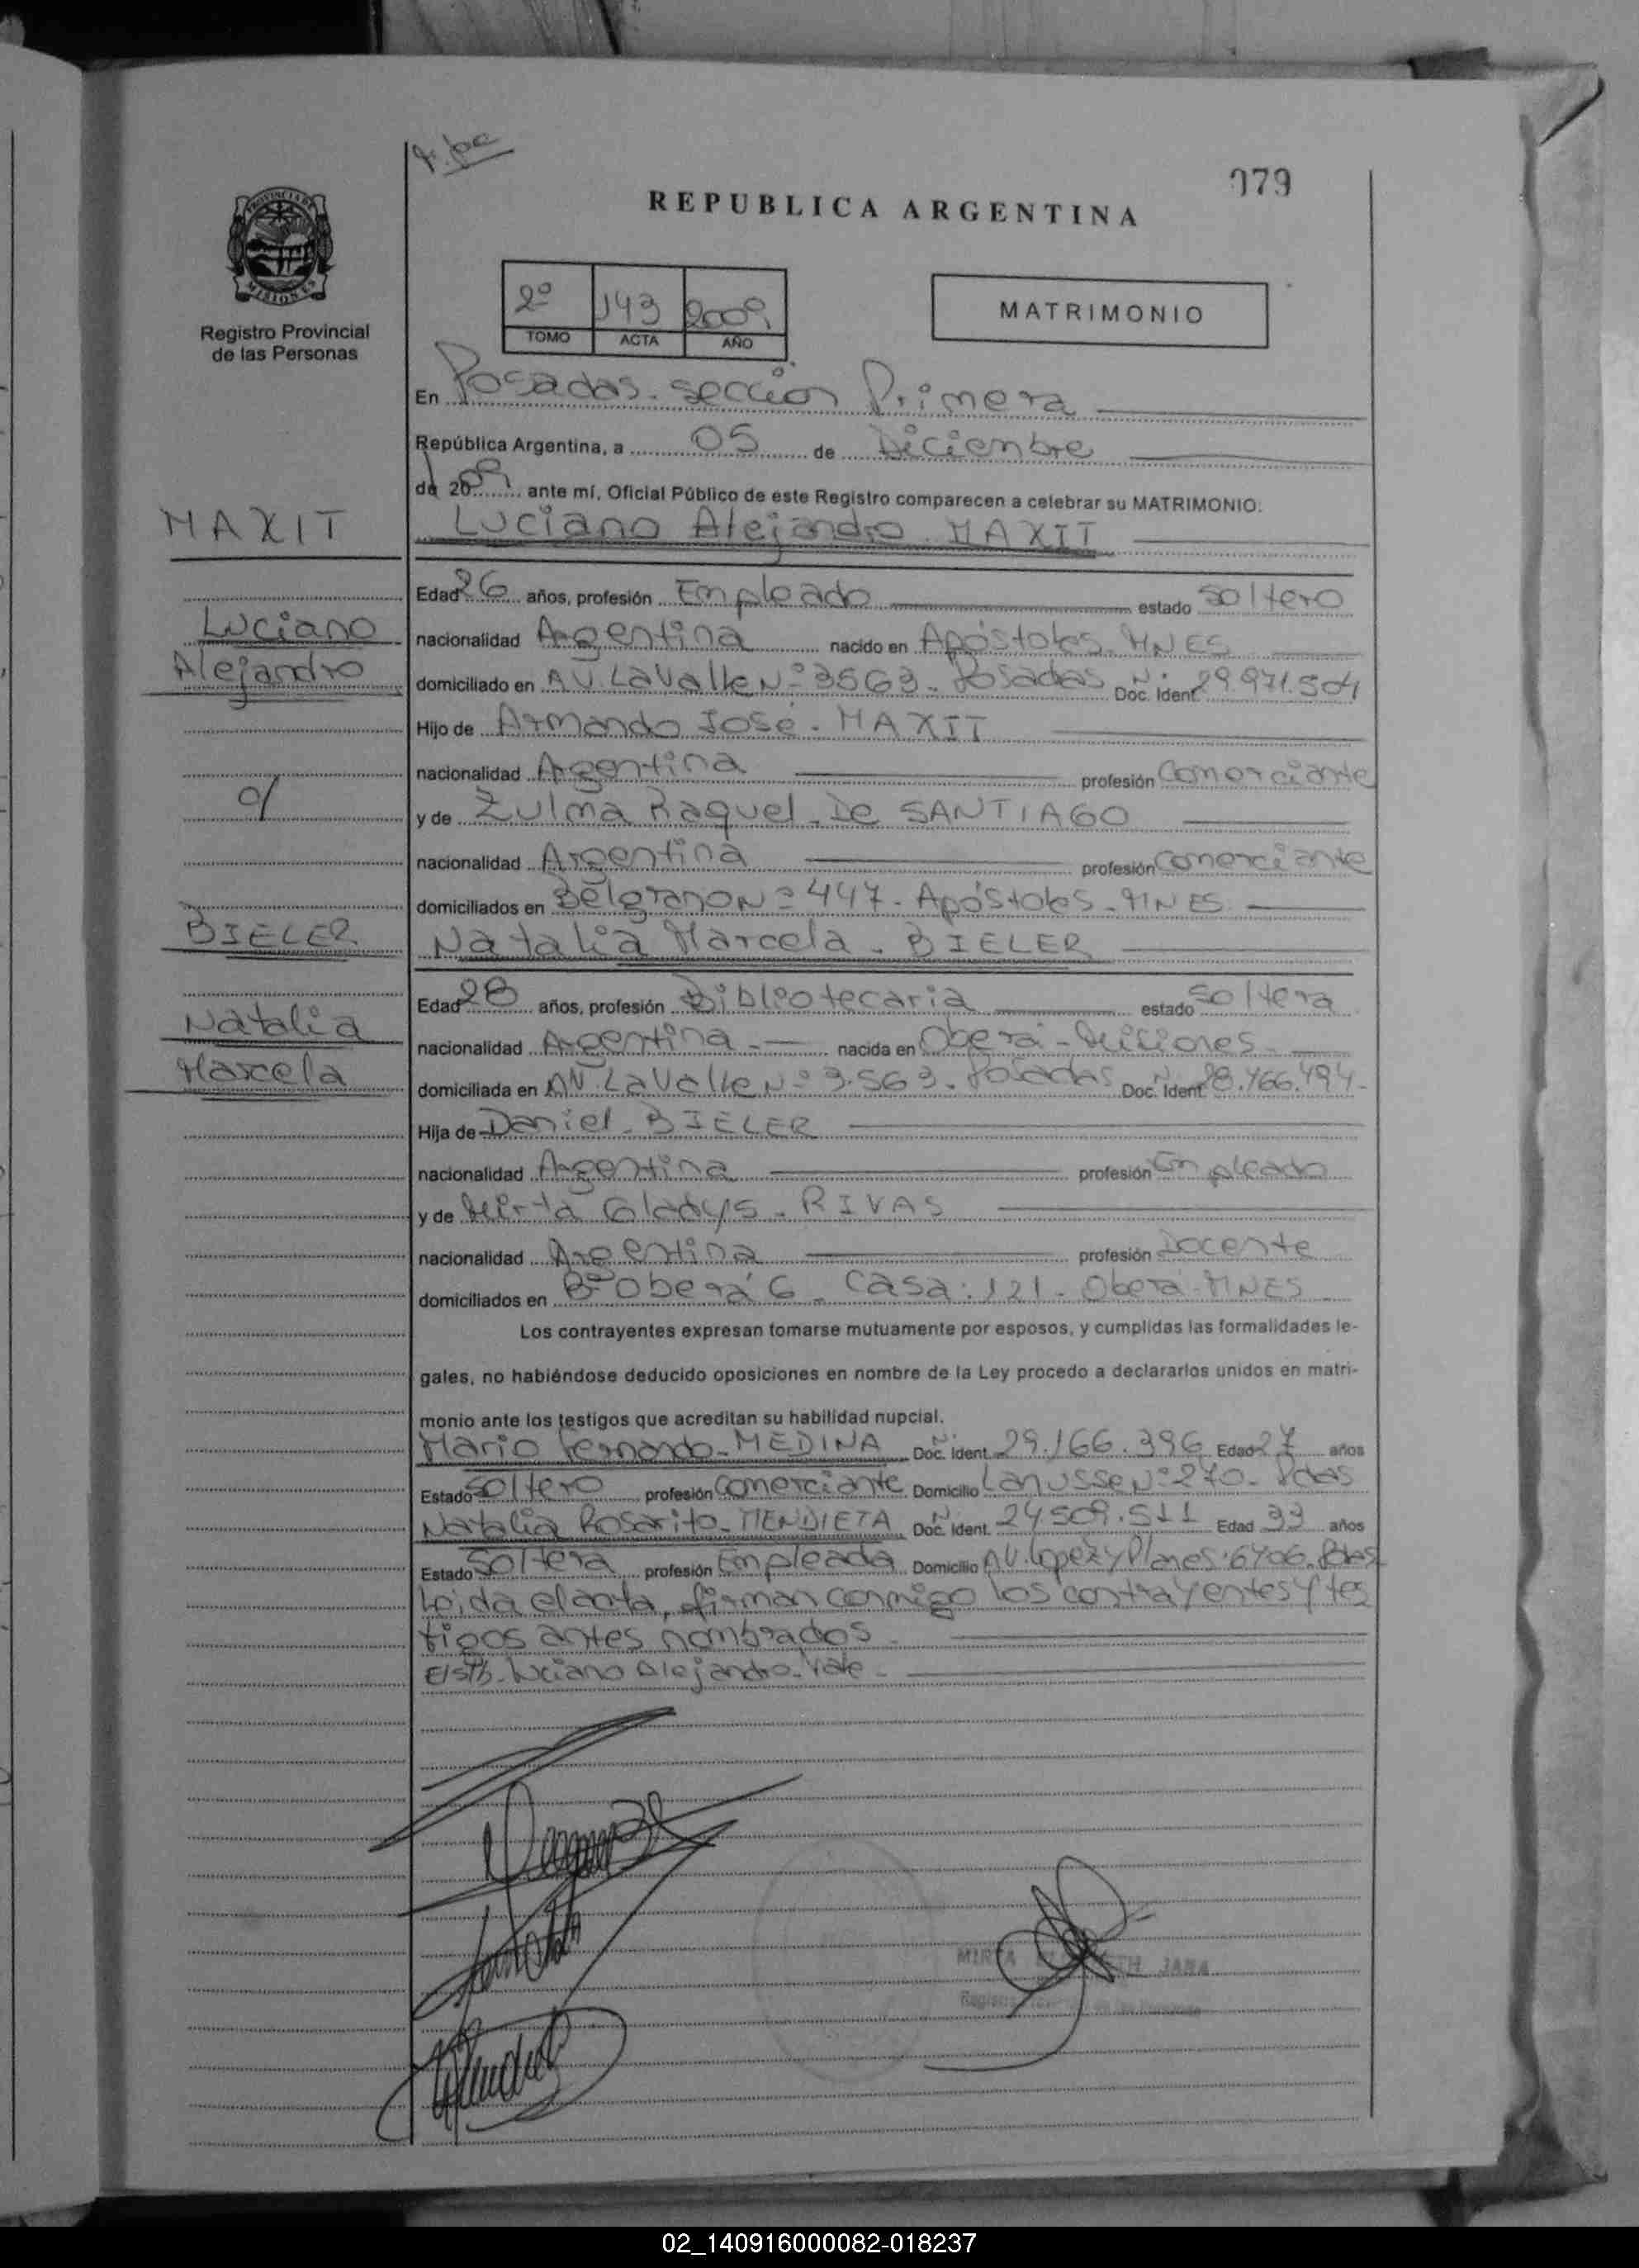 079
REPUBLICA ARGENTINA
PROVINCIA DE
MISIONES
Registro Provincial
de las Personas
2º 143 2009
TOMO ACTA AÑO
MATRIMONIO
En Posadas. sección Primera
República Argentina, a 05 de Diciembre
de 2009 ante mí, Oficial Público de este Registro comparecen a celebrar su MATRIMONIO.
MAXIT
Luciano Alejandro. MAXIT
Edad 26 años, profesión Empleado estado soltero
Luciano
nacionalidad Argentina nacido en Apóstoles. MNES
Alejandro
domiciliado en AV. Lavalle Nº 3563. Posadas Doc. Ident. Nº 29.971.504
Hijo de Armando José. MAXIT
nacionalidad Argentina profesión Comerciante
y de Zulma Raquel. De SANTIAGO
nacionalidad Argentina profesión Comerciante
domiciliados en Belgrano Nº 447. Apóstoles. MNES
BIELER
Natalia Marcela. BIELER
Edad 28 años, profesión Bibliotecaria estado soltera
Natalia
nacionalidad Argentina nacida en Oberá - Misiones
Marcela
domiciliada en AV. Lavalle Nº 3.563. Posadas Doc. Ident. Nº 28.766.494
Hija de Daniel. BIELER
nacionalidad Argentina profesión Empleado
y de Mirta Gladys. RIVAS
nacionalidad Argentina profesión Docente
domiciliados en Bº Oberá 6. Casa: 121. Oberá. MNES
Los contrayentes expresan tomarse mutuamente por esposos, y cumplidas las formalidades le-
gales, no habiéndose deducido oposiciones en nombre de la Ley procedo a declararlos unidos en matri-
monio ante los testigos que acreditan su habilidad nupcial.
Mario Fernando. MEDINA Doc. Ident. Nº 29.166.396 Edad 27 años
Estado Soltero profesión Comerciante Domicilio Lanusse Nº 270. Pdas
Natalia Rosarito. MENDIETA Doc. Ident. Nº 24.509.511 Edad 33 años
Estado Soltera profesión Empleada Domicilio AV. Lopez y Planes. 6706. Pdas
Leida el acta, firman conmigo los contrayentes y tes
tigos antes nombrados.
E/S/b. Luciano Alejandro. Vale.
MIRTA JARA
02_140916000082-018237